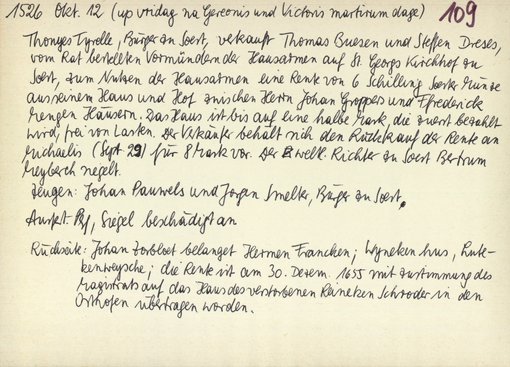 1526 Okt. 12 (up vridag na Gereonis und Victoris martirum dage) 109
Thonyes Tyrelle, Bürger zu Soest, verkauft Thomas Buesen und Steffen Dreses,
vom Rat bestellten Vormündern der Hausarmen auf St. Georgs Kirchhof zu
Soest, zum Nutzen der Hausarmen eine Rente von 6 Schilling Soester Münze
aus seinem Haus und Hof zwischen Herrn Johan Groppers und Ffrederick
Mengen Häusern. Das Haus ist bis auf eine halbe Mark, die zuerst bezahlt
wird, frei von Lasten. Der Verkäufer behält sich den Rückkauf der Rente an
Michaelis (Sept. 29) für 8 Mark vor. Der weltl. Richter zu Soest Bertrum
Meyberch siegelt.
Zeugen: Johan Pauwels und Jorgen Smelter, Bürger zu Soest.
Ausf. Pg, Siegel beschädigt an
Rückseite: Johan belanget Hermen Francken; Wyneken hus, Lutke-
kenweysche; die Rente ist am 30. Dezem. 1655 mit Zustimmung des
Magistrats auf das Haus des verstorbenen Reineken Schroder in den
Osthofen übertragen worden.